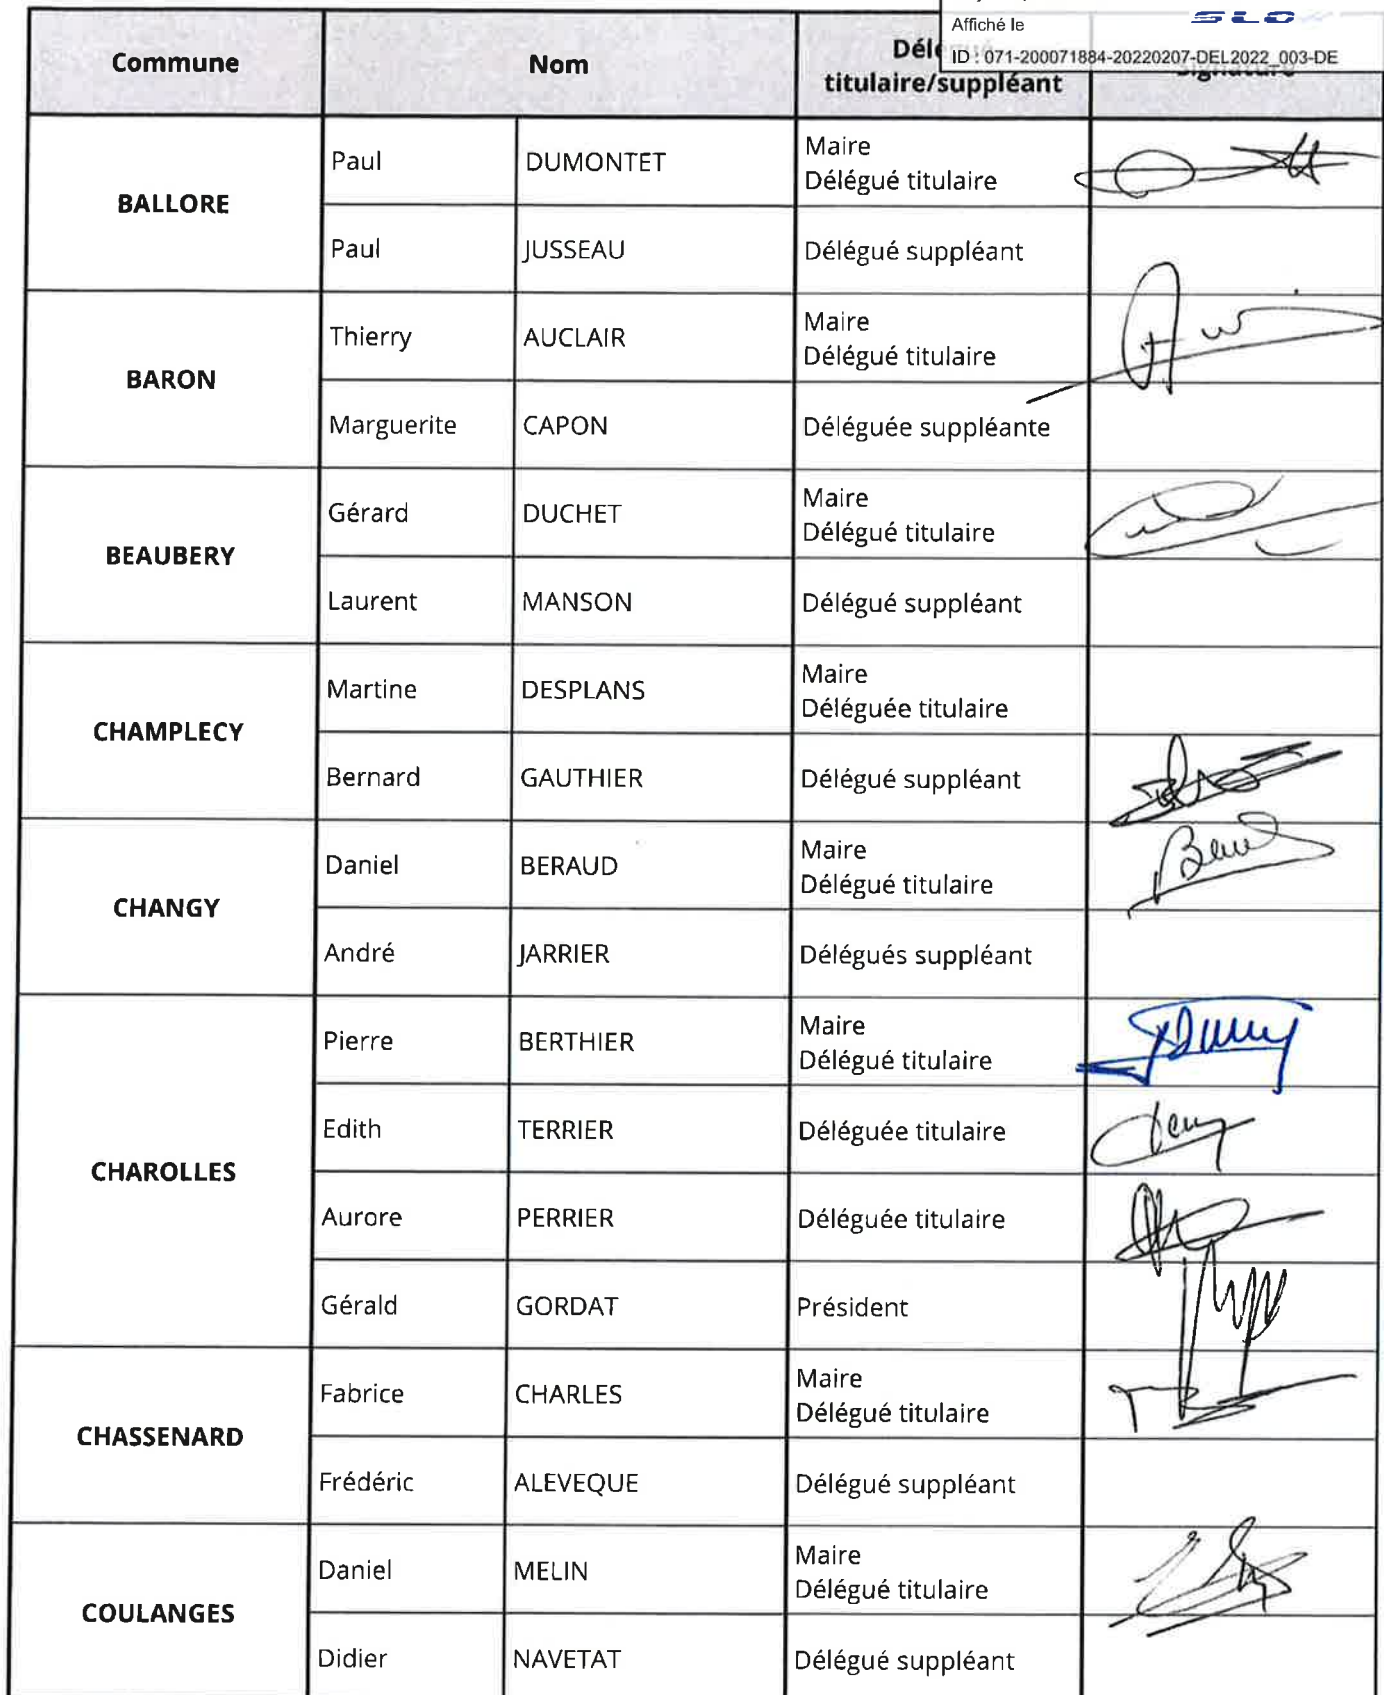 Affiché le
SLO
ID : 071-200071884-20220207-DEL2022_003-DE
Commune
Nom
titulaire/suppléant
Signature
BALLORE
Paul DUMONTET Maire
Délégué titulaire
Paul JUSSEAU Délégué suppléant
BARON
Thierry AUCLAIR Maire
Délégué titulaire
Marguerite CAPON Déléguée suppléante
BEAUBERY
Gérard DUCHET Maire
Délégué titulaire
Laurent MANSON Délégué suppléant
CHAMPLECY
Martine DESPLANS Maire
Déléguée titulaire
Bernard GAUTHIER Délégué suppléant
CHANGY
Daniel BERAUD Maire
Délégué titulaire
André JARRIER Délégués suppléant
CHAROLLES
Pierre BERTHIER Maire
Délégué titulaire
Edith TERRIER Déléguée titulaire
Aurore PERRIER Déléguée titulaire
Gérald GORDAT Président
CHASSENARD
Fabrice CHARLES Maire
Délégué titulaire
Frédéric ALEVEQUE Délégué suppléant
COULANGES
Daniel MELIN Maire
Délégué titulaire
Didier NAVETAT Délégué suppléant